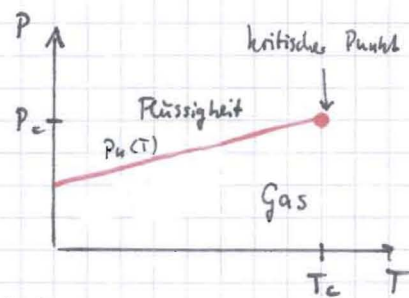 P
kritischer Punkt
Pc
Flüssigkeit
Pu(T)
Gas
Tc
T